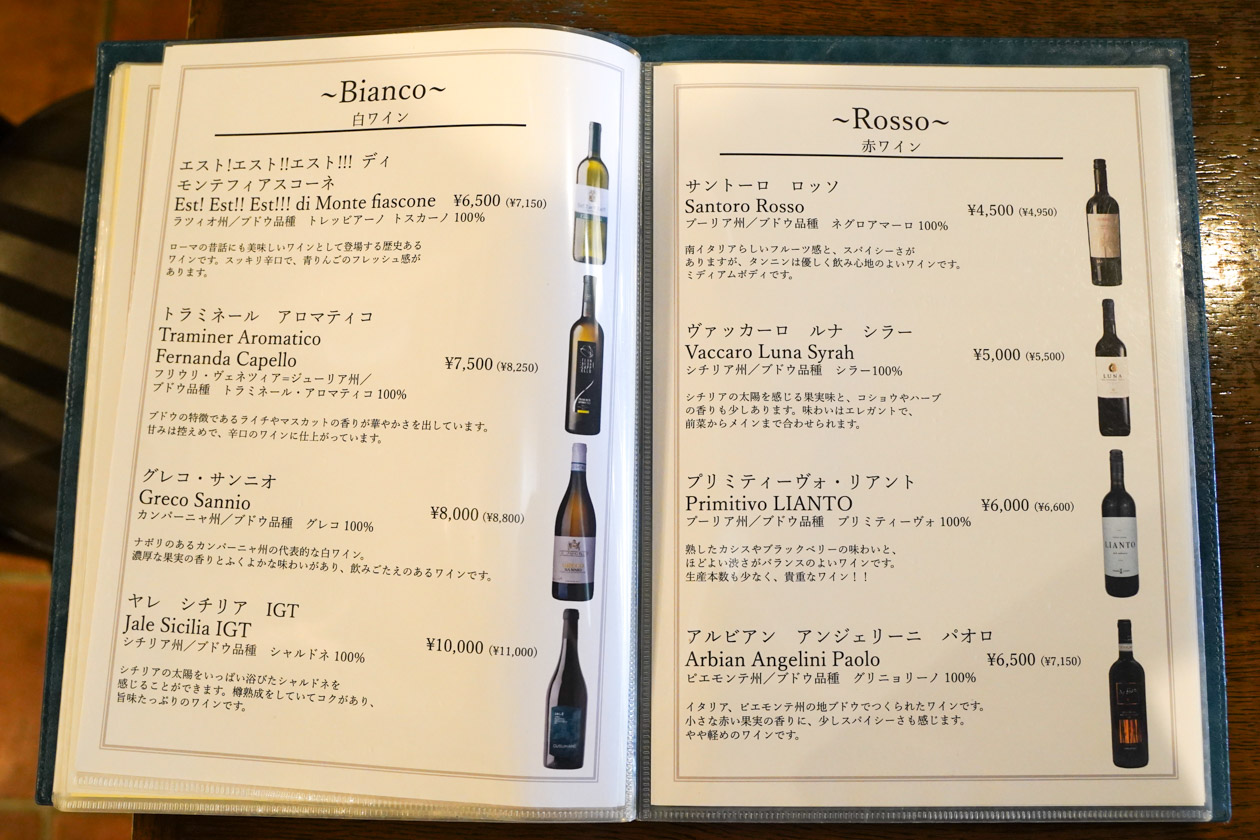 ~Bianco~
白ワイン
エスト!エスト!!エスト!!! ディ
モンテフィアスコーネ
Est! Est!! Est!!! di Monte fiascone ¥6,500 (¥7,150)
ラツィオ州／ブドウ品種 トレッビアーノ トスカーノ 100%
ローマの昔話にも美味しいワインとして登場する歴史ある
ワインです。スッキリ辛口で、青りんごのフレッシュ感が
あります。
トラミネール アロマティコ
Traminer Aromatico
Fernanda Capello ¥7,500 (¥8,250)
フリウリ・ヴェネツィア=ジューリア州／
ブドウ品種 トラミネール・アロマティコ 100%
ブドウの特徴であるライチやマスカットの香りが華やかさを出しています。
甘みは控えめで、辛口のワインに仕上がっています。
グレコ・サンニオ
Greco Sannio ¥8,000 (¥8,800)
カンパーニャ州／ブドウ品種 グレコ 100%
ナポリのあるカンパーニャ州の代表的な白ワイン。
濃厚な果実の香りとふくよかな味わいがあり、飲みごたえのあるワインです。
ヤレ シチリア IGT
Jale Sicilia IGT ¥10,000 (¥11,000)
シチリア州／ブドウ品種 シャルドネ 100%
シチリアの太陽をいっぱい浴びたシャルドネを
感じることができます。樽熟成をしていてコクがあり、
旨味たっぷりのワインです。
~Rosso~
赤ワイン
サントーロ ロッソ
Santoro Rosso ¥4,500 (¥4,950)
プーリア州／ブドウ品種 ネグロアマーロ 100%
南イタリアらしいフルーツ感と、スパイシーさが
ありますが、タンニンは優しく飲み心地のよいワインです。
ミディアムボディです。
ヴァッカーロ ルナ シラー
Vaccaro Luna Syrah ¥5,000 (¥5,500)
シチリア州／ブドウ品種 シラー100%
シチリアの太陽を感じる果実味と、コショウやハーブ
の香りも少しあります。味わいはエレガントで、
前菜からメインまで合わせられます。
LUNA
プリミティーヴォ・リアント
Primitivo LIANTO ¥6,000 (¥6,600)
プーリア州／ブドウ品種 プリミティーヴォ 100%
熟したカシスやブラックベリーの味わいと、
ほどよい渋さがバランスのよいワインです。
生産本数も少なく、貴重なワイン！！
LIANTO
アルビアン アンジェリーニ パオロ
Arbian Angelini Paolo ¥6,500 (¥7,150)
ピエモンテ州／ブドウ品種 グリニョリーノ 100%
イタリア、ピエモンテ州の地ブドウでつくられたワインです。
小さな赤い果実の香りに、少しスパイシーさも感じます。
やや軽めのワインです。